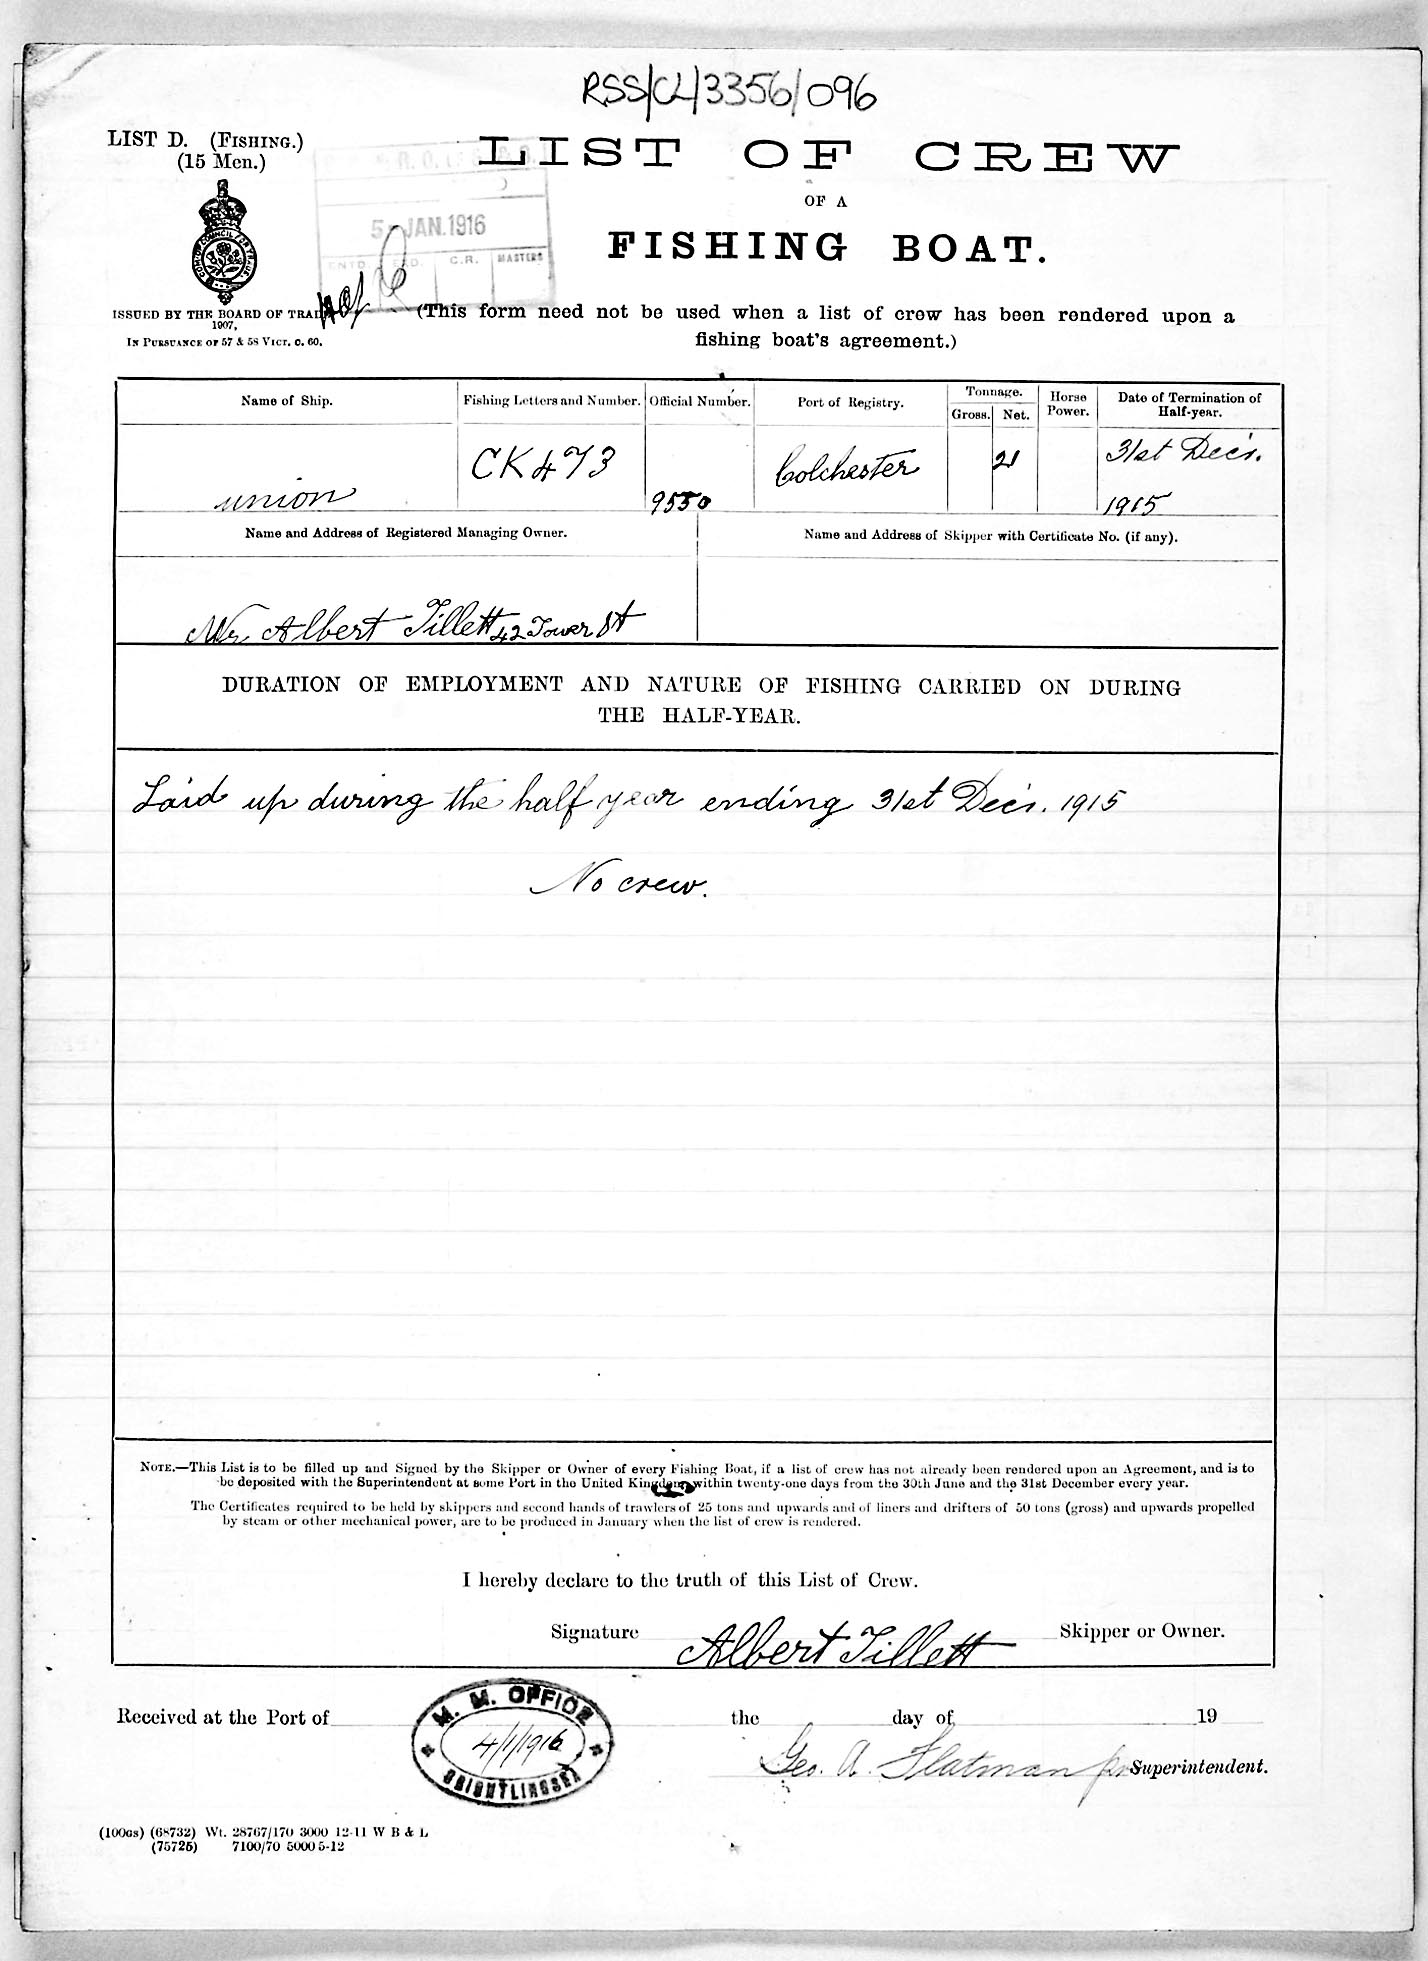 RSS/CL/3356/096
LIST D. (FISHING.)
(15 Men.)
LIST OF CREW
OF A
FISHING BOAT.
5 JAN. 1916
C.R. MASTERS
ISSUED BY THE BOARD OF TRADE
1907,
IN PURSUANCE OF 57 & 58 VICT. C. 60.
(This form need not be used when a list of crew has been rendered upon a
fishing boat's agreement.)
Name of Ship. Fishing Letters and Number. Official Number. Port of Registry. Tonnage. Gross. Net. Horse Power. Date of Termination of Half-year.
union CK 473 9550 Colchester 21 31st Decr. 1915
Name and Address of Registered Managing Owner. Name and Address of Skipper with Certificate No. (if any).
Mr Albert Tillett 42 Tower St
DURATION OF EMPLOYMENT AND NATURE OF FISHING CARRIED ON DURING
THE HALF-YEAR.
Laid up during the half year ending 31st Decr. 1915
No crew.
NOTE.—This List is to be filled up and Signed by the Skipper or Owner of every Fishing Boat, if a list of crew has not already been rendered upon an Agreement, and is to
be deposited with the Superintendent at some Port in the United Kingdom within twenty-one days from the 30th June and the 31st December every year.
The Certificates required to be held by skippers and second hands of trawlers of 25 tons and upwards and of liners and drifters of 50 tons (gross) and upwards propelled
by steam or other mechanical power, are to be produced in January when the list of crew is rendered.
I hereby declare to the truth of this List of Crew.
Signature Albert Tillett Skipper or Owner.
M. M. OFFICE
Received at the Port of the day of 19
4/1/1916
BRIGHTLINGSEA
Geo. A. Flatman pr Superintendent.
(100GS) (68732) Wt. 28767/170 3000 12-11 W B & L
(75725) 7100/70 5000 5-12